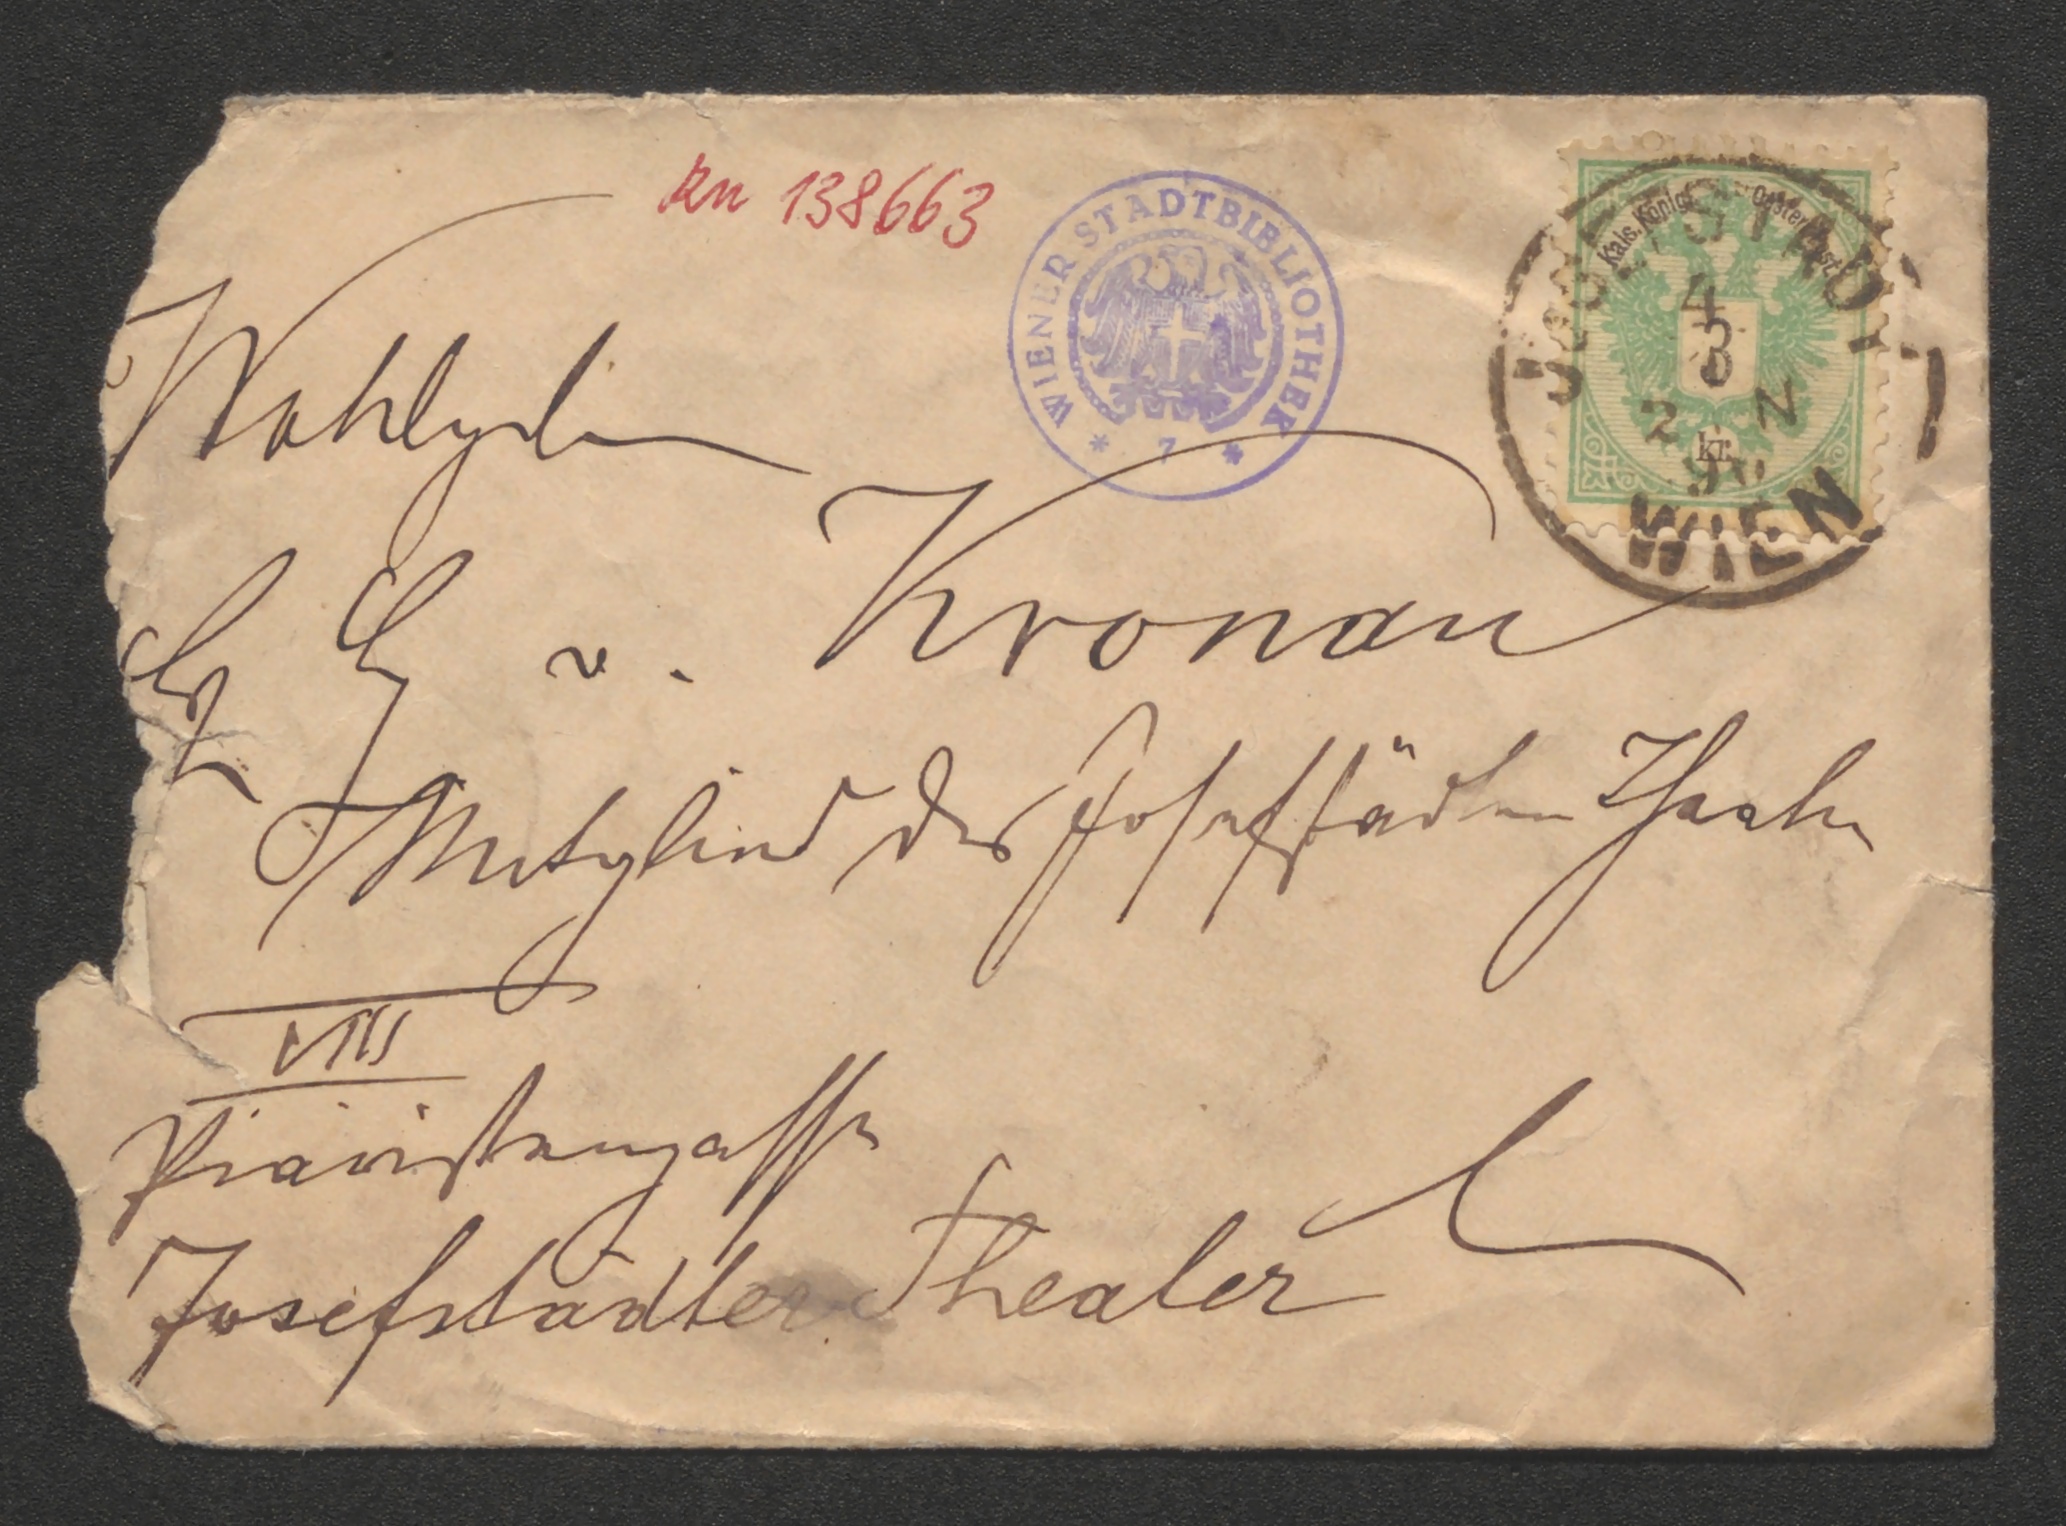 kn 138663
WIENER STADTBIBLIOTHEK
* 7 *
Kais. Königl. Oesterr. Post
3
kr.
JOSEFSTADT
4
2 N
90
WIEN
v. Kronau
Mitglied des Josefstädter Theater
VIII
Piaristengasse
Josefstädter Theater